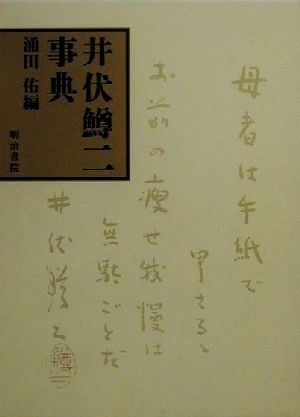 井伏鱒二
事典
涌田 佑編
明治書院
母者は手紙で
申さるゝ
お前の痩せ我慢は
無駄ごとだ
井伏鱒二
鱒二